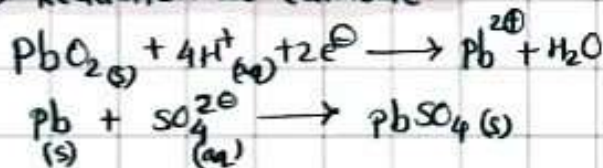 PbO₂(s) + 4H⁺(aq) + 2e⊖ ⟶ Pb²⊕ + H₂O
Pb(s) + SO₄²⊖(aq) ⟶ PbSO₄(s)